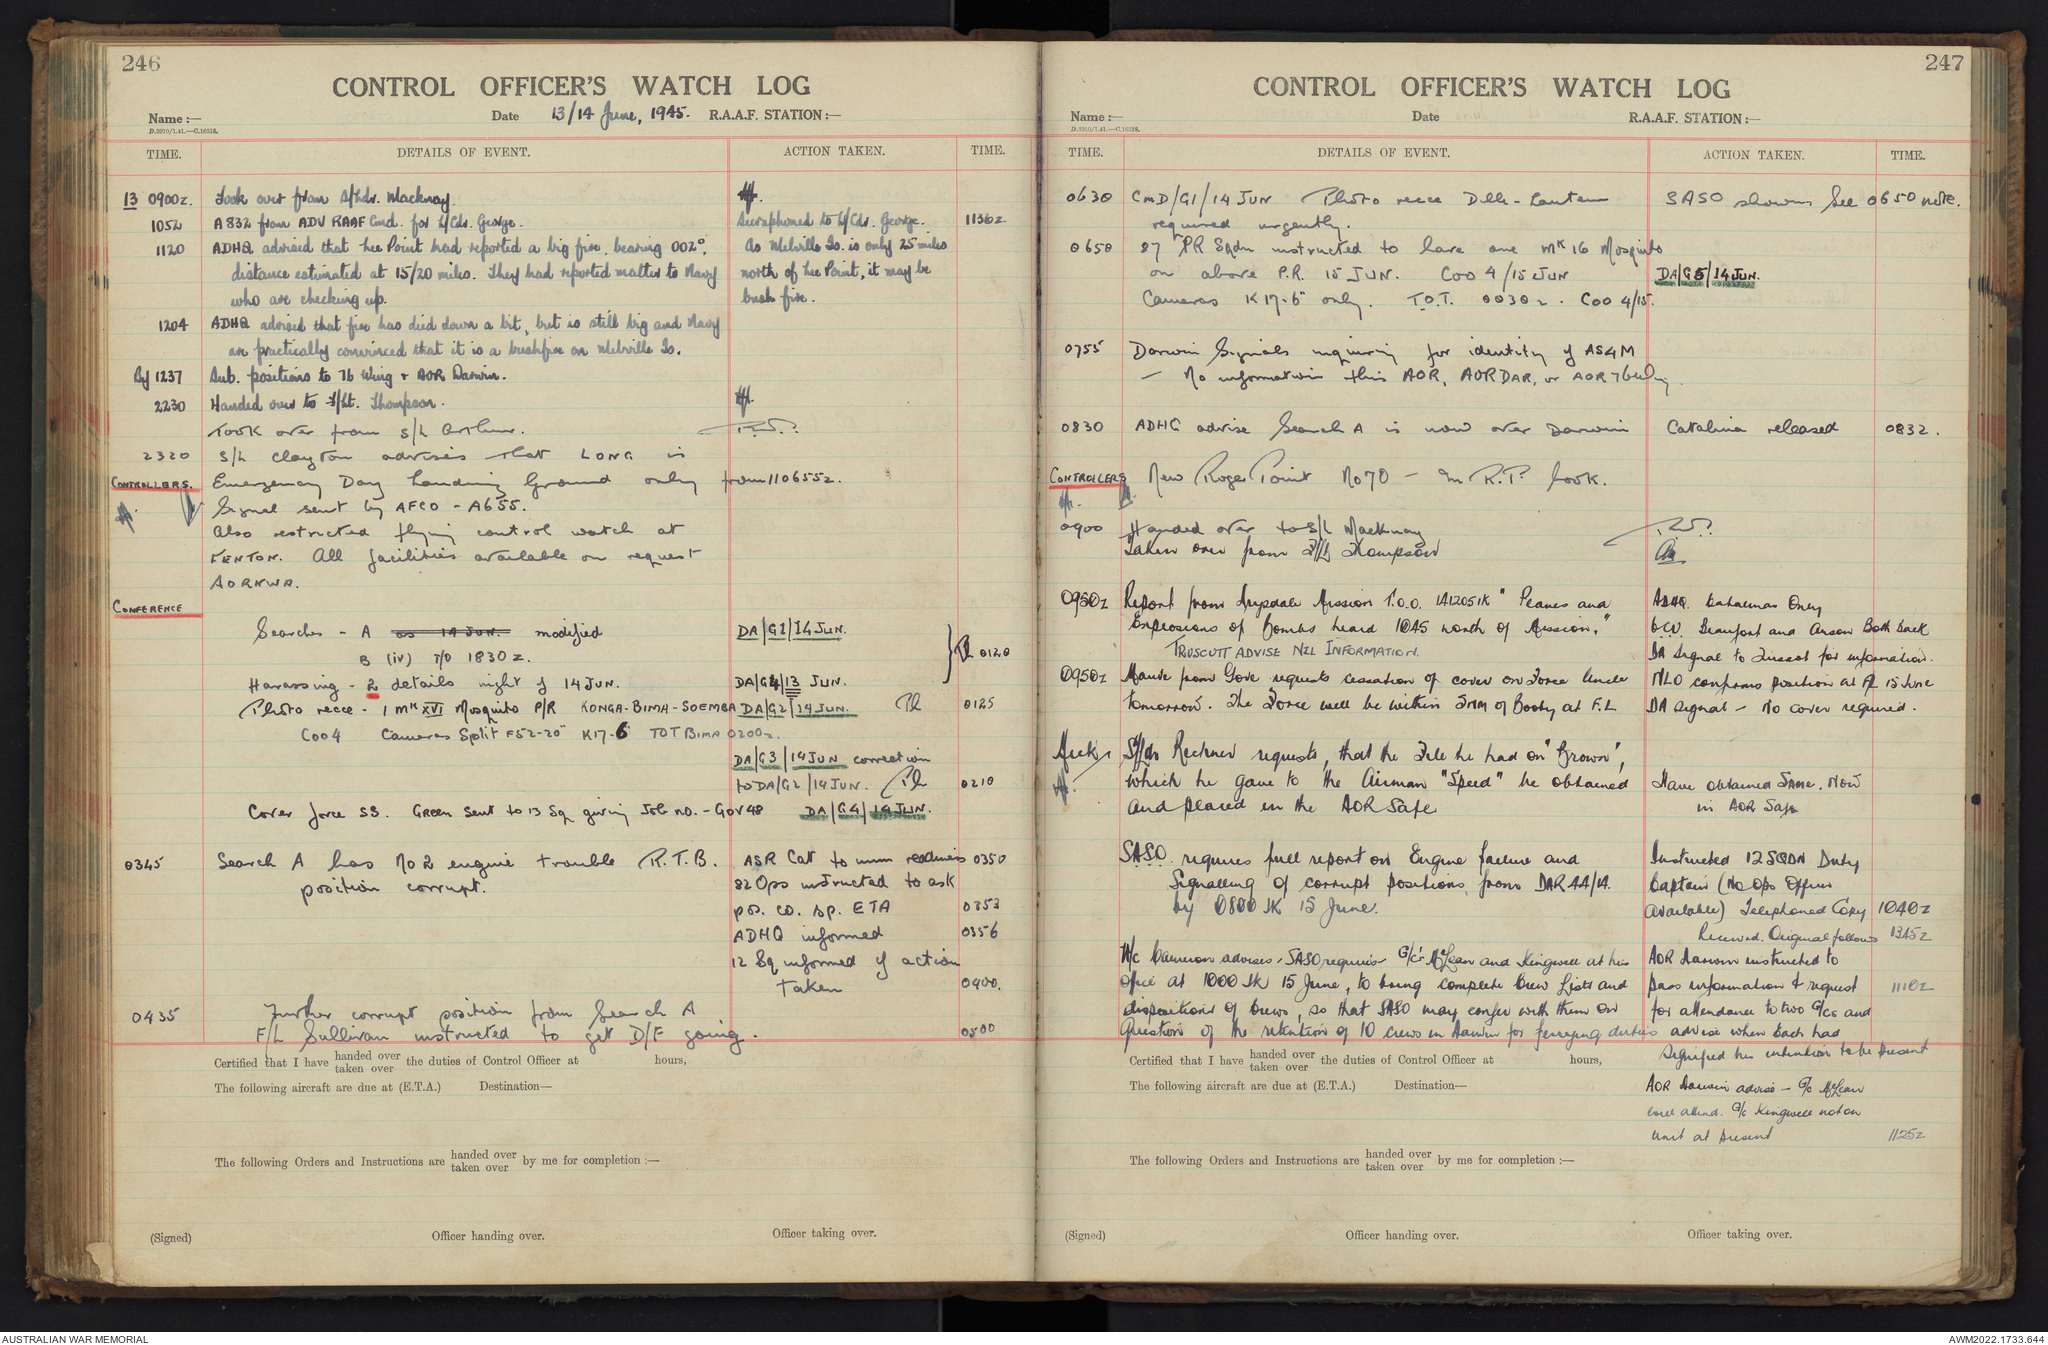 246
CONTROL OFFICER'S WATCH LOG
Name :—
Date 13/14 June, 1945. R.A.A.F. STATION :—
D.3910/1.41.—C.16318.
TIME. DETAILS OF EVENT. ACTION TAKEN. TIME.
13 0900z. Took over from S/Ldr. Macknay.
1052 A832 from ADV RAAF Cmd. for W/Cdr. George. Secraphoned to W/Cdr. George. 1136z
1120 ADHQ advised that Lee Point had reported a big fire, bearing 002°, As Melville Is. is only 25 miles
distance estimated at 15/20 miles. They had reported matter to Navy north of Lee Point, it may be
who are checking up. bush fire.
1204 ADHQ advised that fire has died down a bit, but is still big and Navy
are practically convinced that it is a bushfire on Melville Is.
By 1237 Sub. positions to 76 Wing + AOR Darwin.
2230 Handed over to F/Lt. Thompson.
Took over from S/L Arthur.
2320 S/L Clayton advises that LONG is
CONTROLLERS. Emergency Day Landing Ground only from 110655z.
Signal sent by AFCO - A655.
Also restricted flying control watch at
FENTON. All facilities available on request
AORNWA.
CONFERENCE
Searches - A as 14 JUN. modified DA/G1/14 JUN.
B (iv) T/O 1830z. 0120
Harassing - 2 details night of 14 JUN. DA/G4/13 JUN.
Photo recce - 1 Mk XVI Mosquito P/R KONGA-BIMA-SOEMBA DA/G2/14 JUN. 0125
Coo4 Cameras Split F52-20" K17-6 TOT BIMA 0200z.
DA/G3/14 JUN correction
to DA/G2/14 JUN. 0210
Cover force SS. Green sent to 13 Sq giving Job no. - Gov 48 DA/G4/14 JUN.
0345 Search A has No 2 engine trouble R.T.B. ASR Cat to mm readiness 0350
position corrupt. 82 Ops instructed to ask
pos. co. sp. ETA 0353
ADHQ informed 0356
12 Sq informed of action
taken 0400.
0435 Further corrupt position from Search A
F/L Sullivan instructed to get D/F going. 0500
Certified that I have handed over taken over the duties of Control Officer at hours,
The following aircraft are due at (E.T.A.) Destination—
The following Orders and Instructions are handed over taken over by me for completion :—
(Signed) Officer handing over. Officer taking over.
247
CONTROL OFFICER'S WATCH LOG
Name :—
Date R.A.A.F. STATION :—
D.3910/1.41.—C.16318.
TIME. DETAILS OF EVENT. ACTION TAKEN. TIME.
0630 CMD/G1/14 JUN Photo recce Dilli - Lautem SASO shown See 0650 note.
required urgently.
0650 87 PR Sqdn instructed to have one Mk 16 Mosquito
on above P.R. 15 JUN. Coo 4/15 JUN DA/G5/14 JUN.
Cameras K17-6" only. T.O.T. 0030z. Coo 4/15.
0755 Darwin Signals inquiring for identity of AS4M
— No information this AOR, AOR DAR, or AOR 76 Wing.
0830 ADHQ advise Search A is now over Darwin Catalina released 0832.
CONTROLLERS New Roger Point No 70 — In R.P. book.
0900 Handed over to S/L Macknay
Taken over from F/Lt Thompson
0950z Report from Drysdale Mission T.O.O. 141205IK "Planes and ADHQ. Catalinas Only
Explosions of Bombs heard 1045 north of Mission." G.C.I. Beaufort and Anson Both back
TRUSCOTT ADVISE NIL INFORMATION. DA Signal to Truscott for information.
0950z from Gove requests cessation of cover on Force Uncle NLO confirms position at FL 15 June
tomorrow. The Force will be within 5NM of Booby at F.L. DA Signal — No cover required.
requests, that the File he had on "Crown",
which he gave to the Airman "Speed" be obtained Have obtained same. Now
and placed in the AOR Safe. in AOR Safe
SASO. requires full report on Engine failure and Instructed 12 SQDN Duty
Signalling of corrupt positions from DAR 44/14. Captain (No Ops Officer
by 0800 IK 15 June. available) Telephoned Copy 1040z
Received. Original follows 1345z
W/C Cameron advises, SASO requires G/C's McLean and Kingwell at his AOR Darwin instructed to
office at 1000 IK 15 June, to bring complete Crew Lists and pass information & request 1110z
dispositions of crews, so that SASO may confer with them on for attendance to two G/Cs and
Question of the retention of 10 crews in Darwin for ferrying duties advise when Each had
Signified his intention to be present
Certified that I have handed over taken over the duties of Control Officer at hours,
The following aircraft are due at (E.T.A.) Destination—
AOR Darwin advise — G/C McLean
will attend. G/C Kingwell not on
Unit at present 1125z
The following Orders and Instructions are handed over taken over by me for completion :—
(Signed) Officer handing over. Officer taking over.
AUSTRALIAN WAR MEMORIAL AWM2022.1733.644